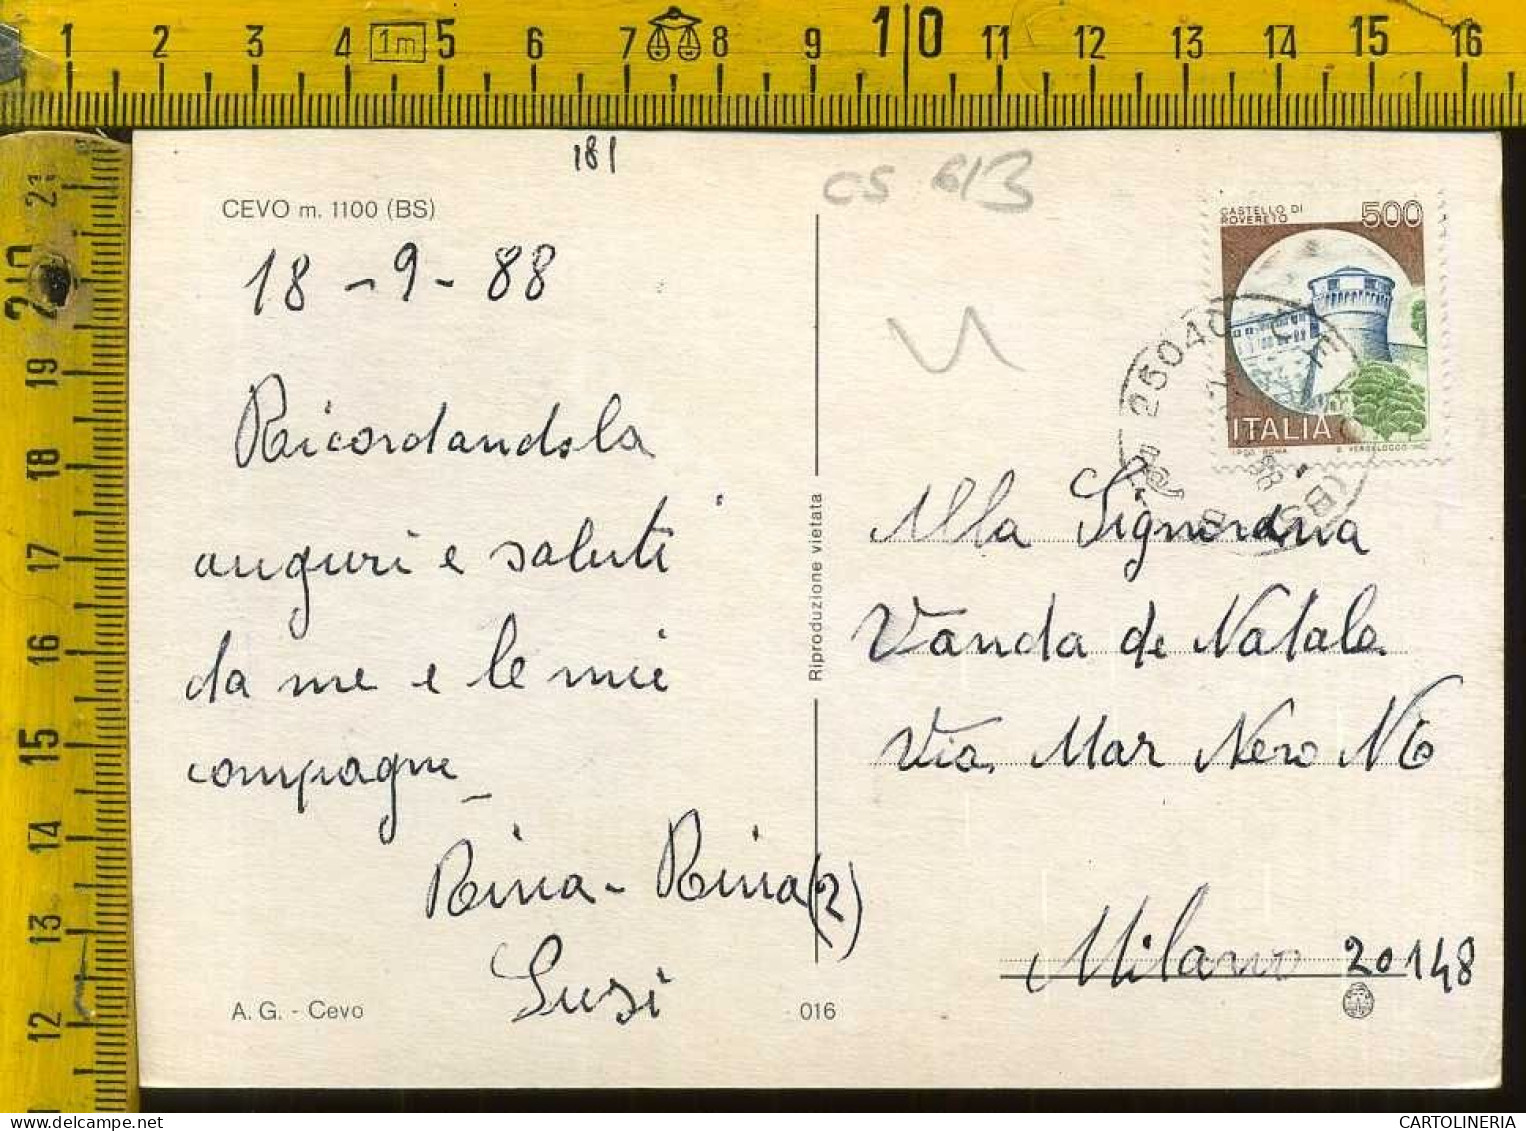 1 2 3 4 1m 5 6 7 8 9 10 11 12 13 14 15 16
181
CS 613
CEVO m. 1100 (BS)
18-9-88
Ricordandola
auguri e saluti
da me e le mie
compagne
Rina - Rina (2)
Susi
A. G. - Cevo
016
Riproduzione vietata
CASTELLO DI
ROVERETO
500
ITALIA
I.P.Z.S. ROMA
E. VERDELOCCO
25040 CEVO (BS)
Alla Signorina
Vanda de Natale
Via Mar Nero N6
Milano 20148
21 20 19 18 17 16 15 14 13 12
CARTOLINERIA